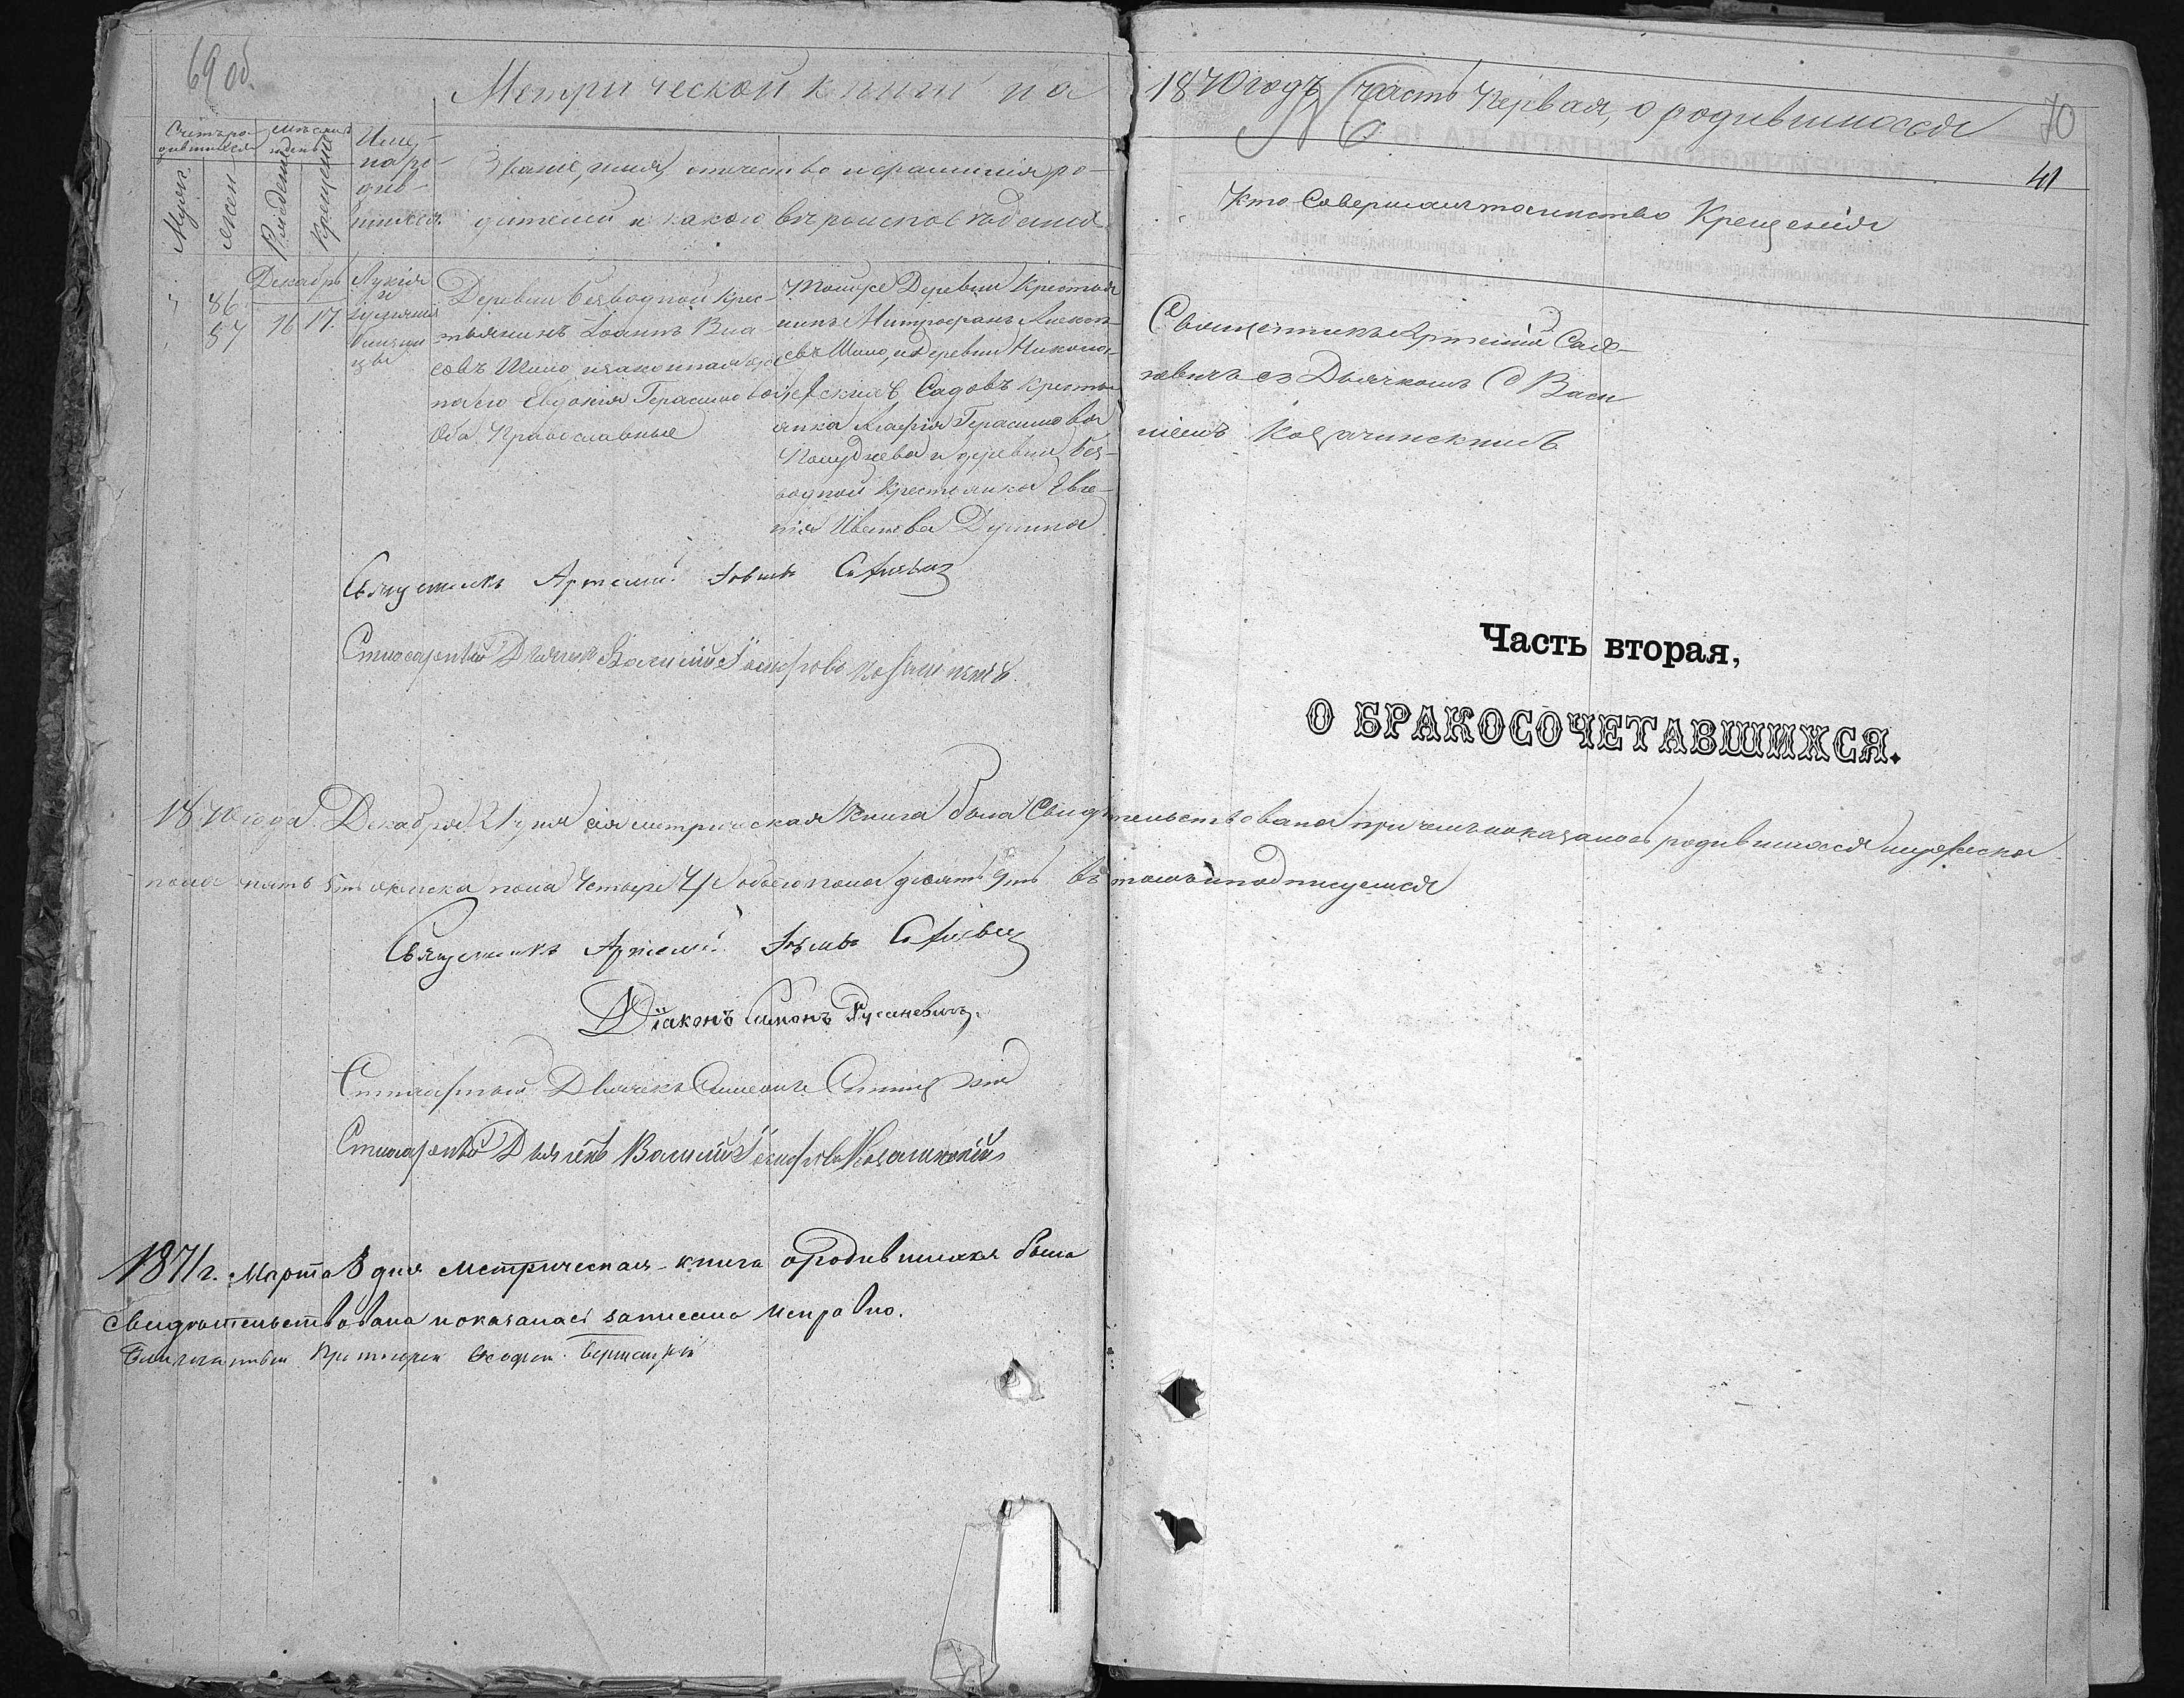 69 об.
Метрической книги на 1870 годъ часть первая, о родившихся
70
41
Счетъ ро-
дившихся
Мужеск.
Женск.
Мѣсяцъ
и день
Рожденiя
Крещенiя
Имена ро-
див-
шихся.
Званiе, имя, отчество и фамилiя ро-
дителей и какого вѣроисповѣданiя
Кто совершалъ таинство Крещенiя
86
87
Декабрь
16
17.
Лукiя
и
близни
цы
Деревни Безводной крес-
тьянинъ Іоаннъ Вла
совъ Шило и законная же-
на его Евдокiя Герасимова
Оба Православные
Тойже Деревни Крестья
нинъ Митрофанъ Алексѣ-
евъ Шило, и Деревни Никола-
евскихъ Садовъ крестья
янка Агафiя Герасимова
и деревни Без-
водной крестьянка Евге-
нiя Иванова
Священникъ Артемiй Саф-
новичъ съ Дьячкомъ Васи
лiемъ Козачинскимъ
Священникъ Артемiй
Стихарный Дьячекъ Василiй Іосифовъ Козачинскiй.
Часть вторая,
О БРАКОСОЧЕТАВШИХСЯ.
1870 года Декабря 21 дня сiя метрическая книга была Свидѣтельствована при чемъ показалось родившихся мужеска
пола пять 5ть женска пола четыре 4 обоего пола девять 9ть въ томъ и подписуемся
Священникъ Артемiй
Дiаконъ Симонъ Русиневичъ.
Стихарный Дьячекъ Симеонъ
Стихарный Дьячекъ Василiй Іосифовъ Козачинскiй
1871 г. Марта 8 дня метрическая книга о родившихся была
свидѣтельствована и оказалась записана исправно.
Благочинный Протоiерей